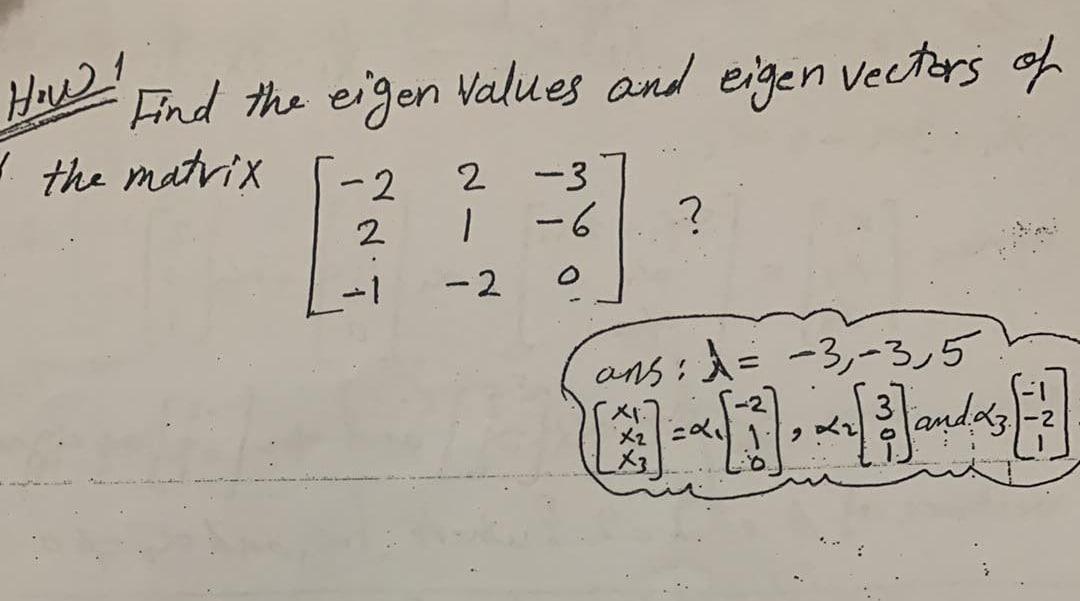 H.W1 Find the eigen values and eigen vectors of
the matrix [-2 2 -3
2 1 -6
-1 -2 0] ?
ans: λ = -3,-3,5
[x1 x2 x3] = α1 [-2 1 0], α2 [3 0 1] and α3 [-1 -2 1]